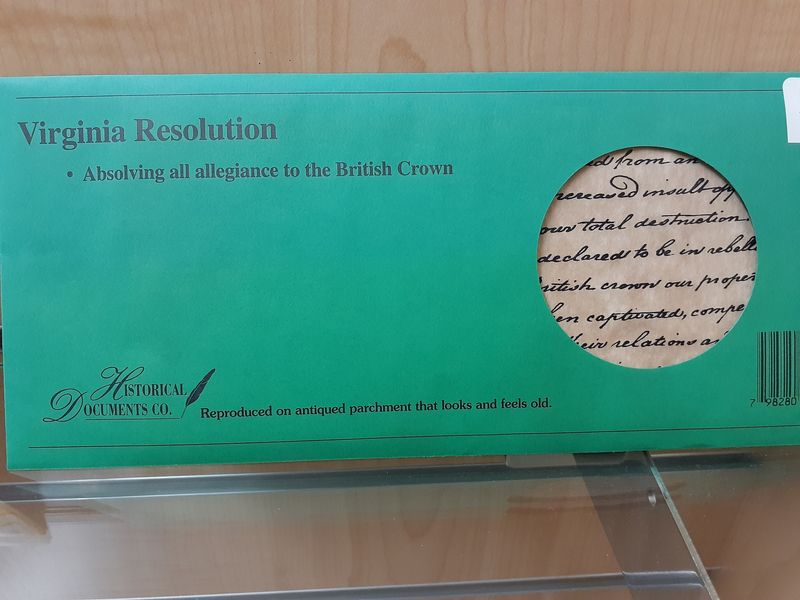 Virginia Resolution
• Absolving all allegiance to the British Crown
from an
insult
our total destruction.
declared to be in
crown our
captivated,
relations
HISTORICAL
DOCUMENTS CO.
Reproduced on antiqued parchment that looks and feels old.
7 98280